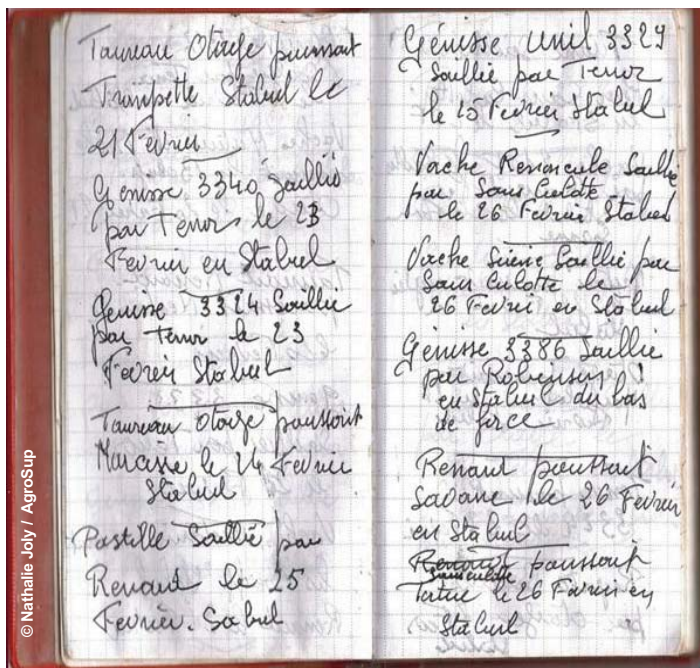 Taureau Otage poussait
Trompette Stabul le
21 Fevrier
Genisse 3340 Saillie
par Tenor le 23
Fevrier en Stabul
Genisse 3324 Saillie
par Tenor le 23
Fevrier Stabul
Taureau Otage poussait
Narcisse le 24 Fevrier
Stabul
Pastille Saillie par
Renaud le 25
Fevrier. Sabul
Génisse Unil 3329
Saillie par Tenor
le 15 Fevrier Stabul
Vache Renoncule Saillie
par Sans Culotte
le 26 Fevrier Stabul
Vache Sirene Saillie par
Sans Culotte le
26 Fevrier en Stabul
Génisse 3386 Saillie
par Robinson
en Stabul du bas
de force
Renaud poussait
Savane le 26 Fevrier
en Stabul
Renaud poussait
sansculotte
Tortue le 26 Fevrier en
Stabul
© Nathalie Joly / AgroSup